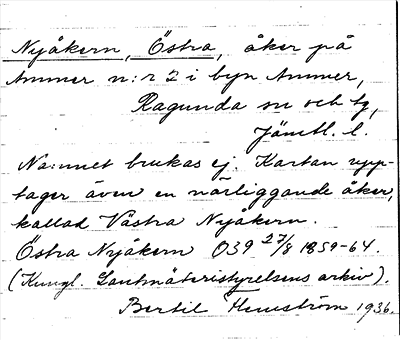 Nyåkern, Östra, åker på
Ammer n:r 2 i byn Ammer,
Ragunda sn och tg,
Jämtl. l.
Na:mnet brukas ej. Kartan upp-
tager även en närliggande åker,
kallad Västra Nyåkern.
Östra Nyåkern O39 27/8 1859-64.
(Kungl. Lantmäteristyrelsens arkiv).
Bertil Hemström 1936.